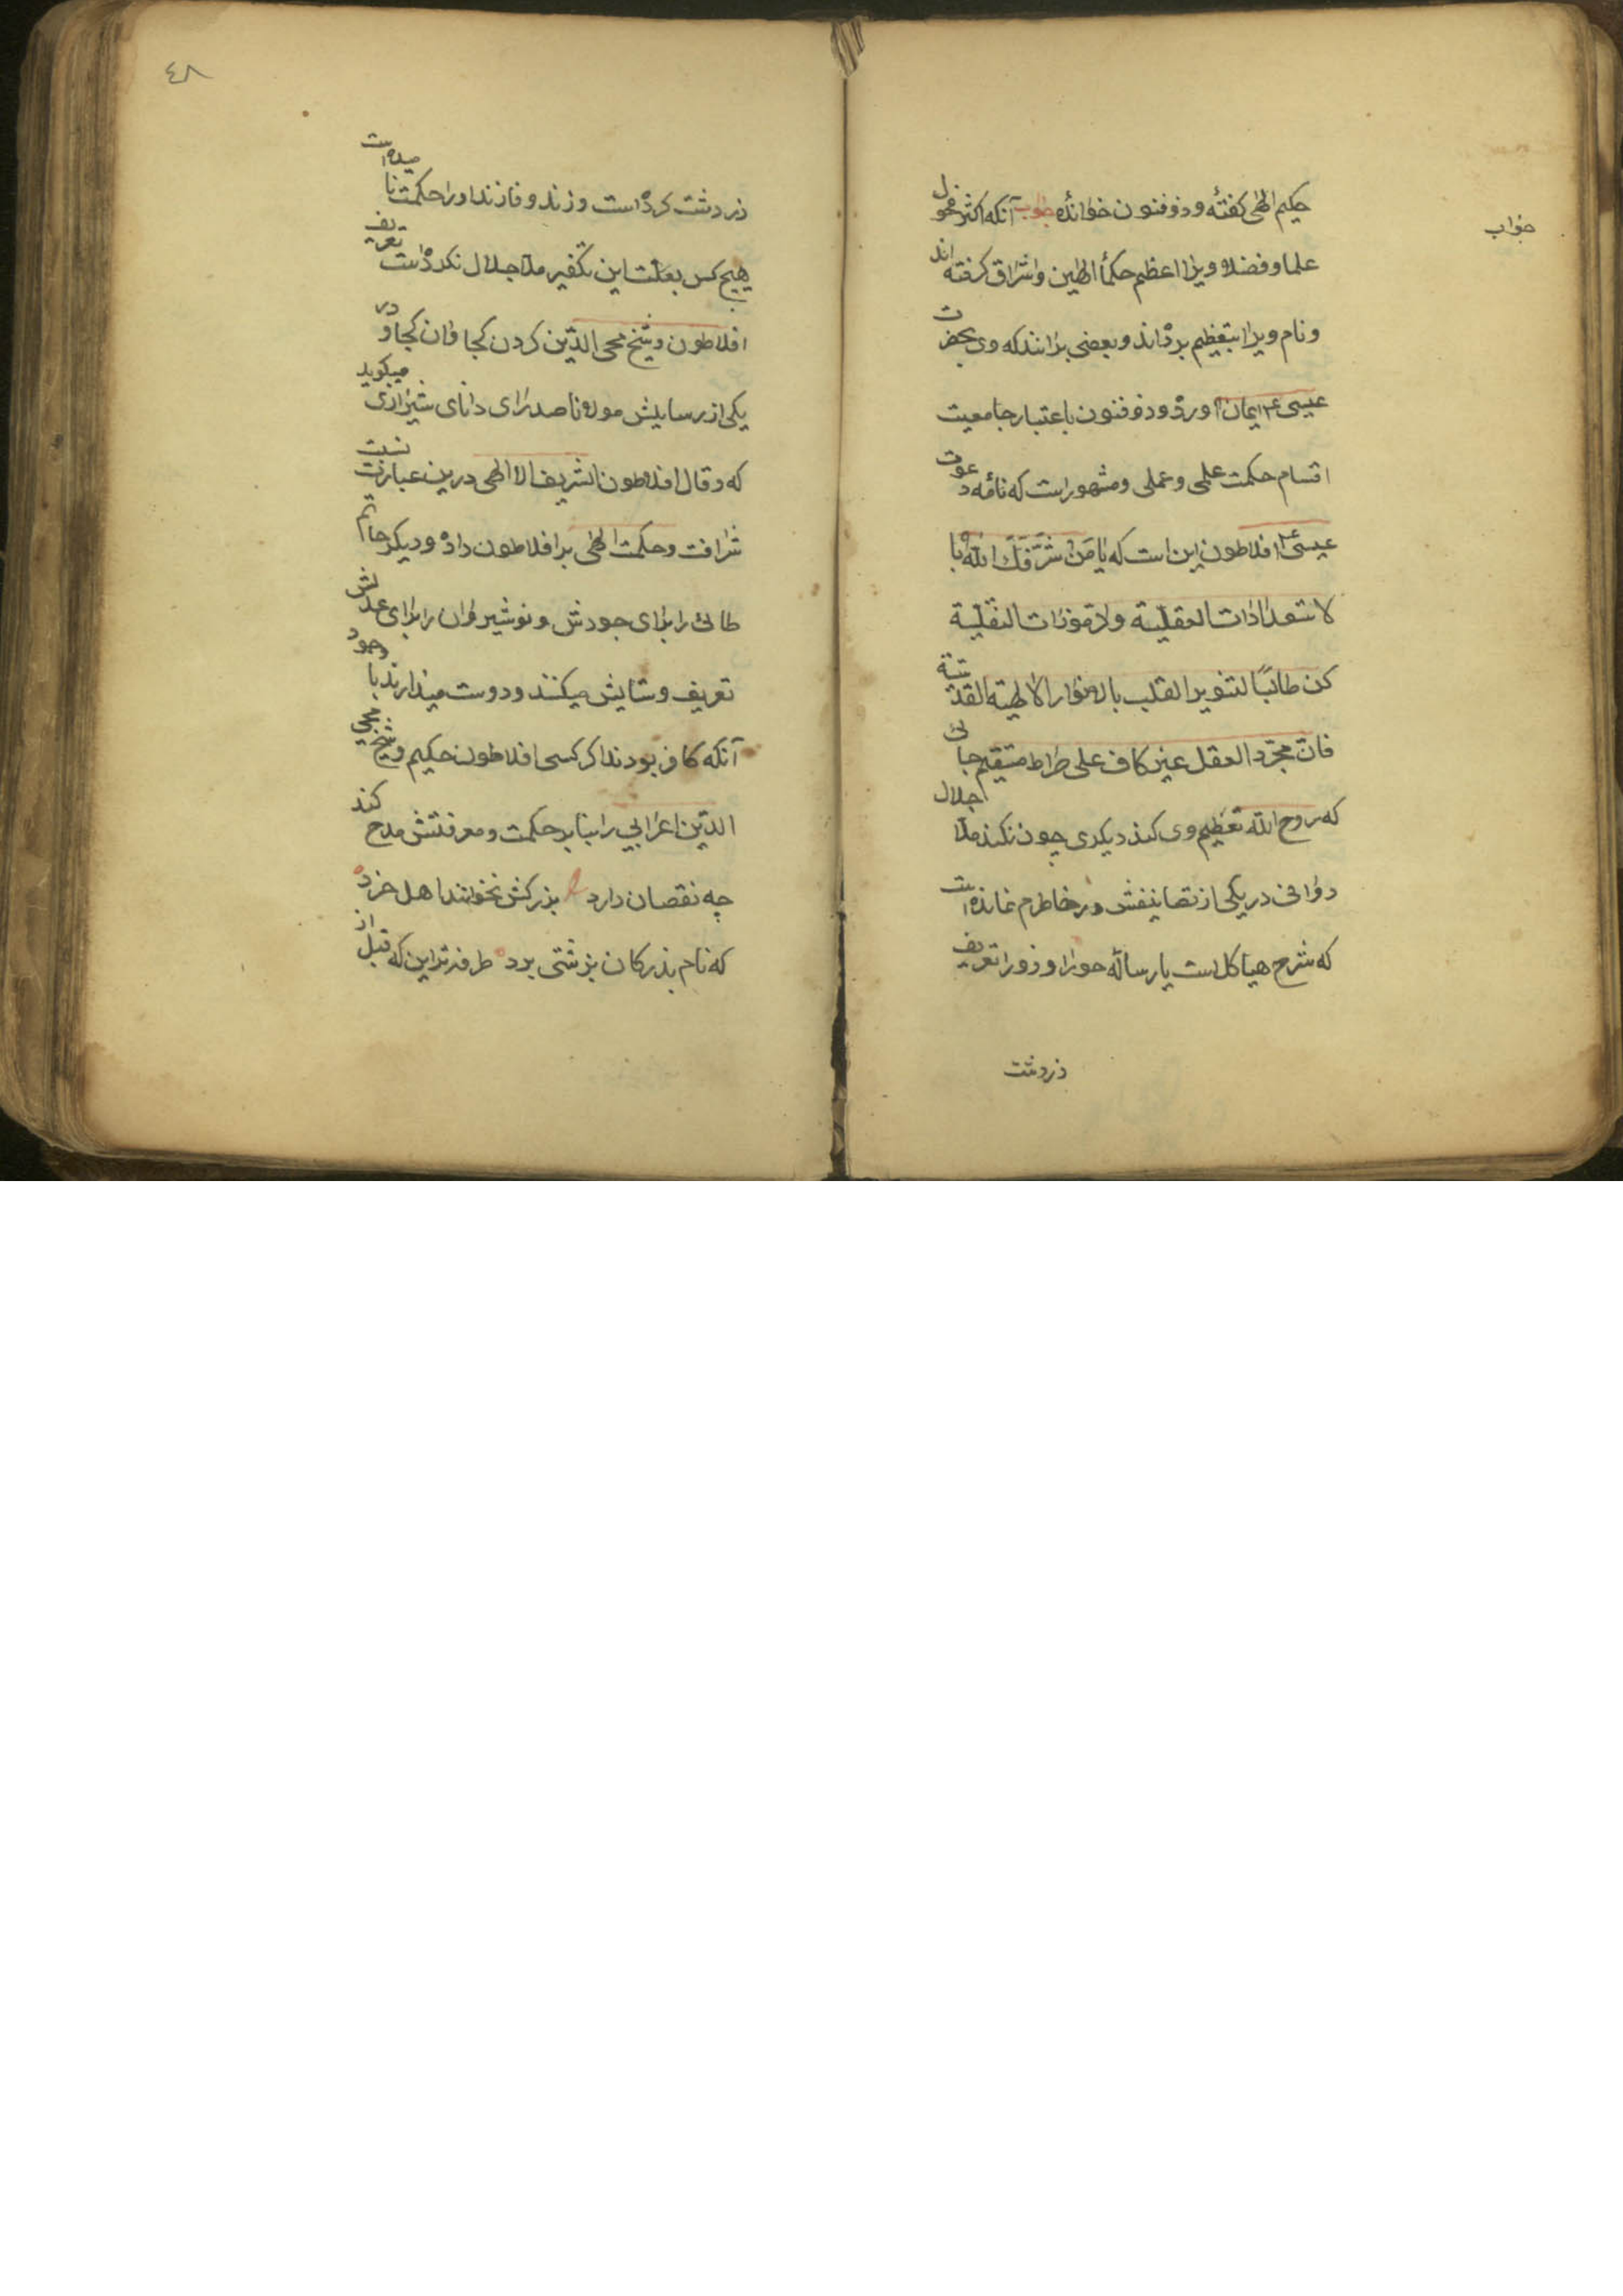 حکیم الهی کفته و ذوفنون خوانده جواب آنکه اکثر فحول
جواب
علما و فضلا ویرا اعظم حکمأ الهین و اشراق کرفته اند
و نام ویرا بتعظیم برده‌اند و بعضی برانند که وی بحضرت
عیسی ع ایمان آورده و ذوفنون باعتبار جامعیت
اقسام حکمت علمی و عملی و مشهور است که نامه دعوت
عیسی ع افلاطون این است که یا من شرفک الله با
لاستعدادات العقلیة ولا قوزات النقلیة
کن طالبا لتنویر القلب بالانوار الالهیته القدسیة
فان مجرد العقل غیر کاف علی صراط مستقیم جائی
که روح الله تعظیم وی کند دیکری چون نکند ملا جلال
دوانی در یکی از تصانیفش در خاطرم نمانده است
که شرح هیاکل است یا رساله حورا و زورا تعریف
زردشت
٤٨
زردشت کرده است و زند و فازند او را حکمت نامیده است
هیچکس بعلت این تکفیر ملا جلال نکرده است تعریف
افلاطون و شیخ محی الدین کردن کجا و ان کجا و در
یکی از رسایلش مولانا صدرای دانای شیرازی میکوید
که و قال افلاطون الشریف الالهی درین عبارت نسبت
شرافت و حکمت الهی بر افلاطون داده و دیکر حاتم
طائی را برای جودش و نوشیروان را برای عدلش
تعریف و ستایش میکنند و دوست میدارند با وجود
آنکه کافر بودند اکر کسی افلاطون حکیم و شیخ محی
الدین اعرابی را بنابر حکمت و معرفتش مدح کند
چه نقصان دارد بزرکش نخوانند اهل خرد
که نام بزرکان بزشتی برد طرفه‌تر این که قبل از